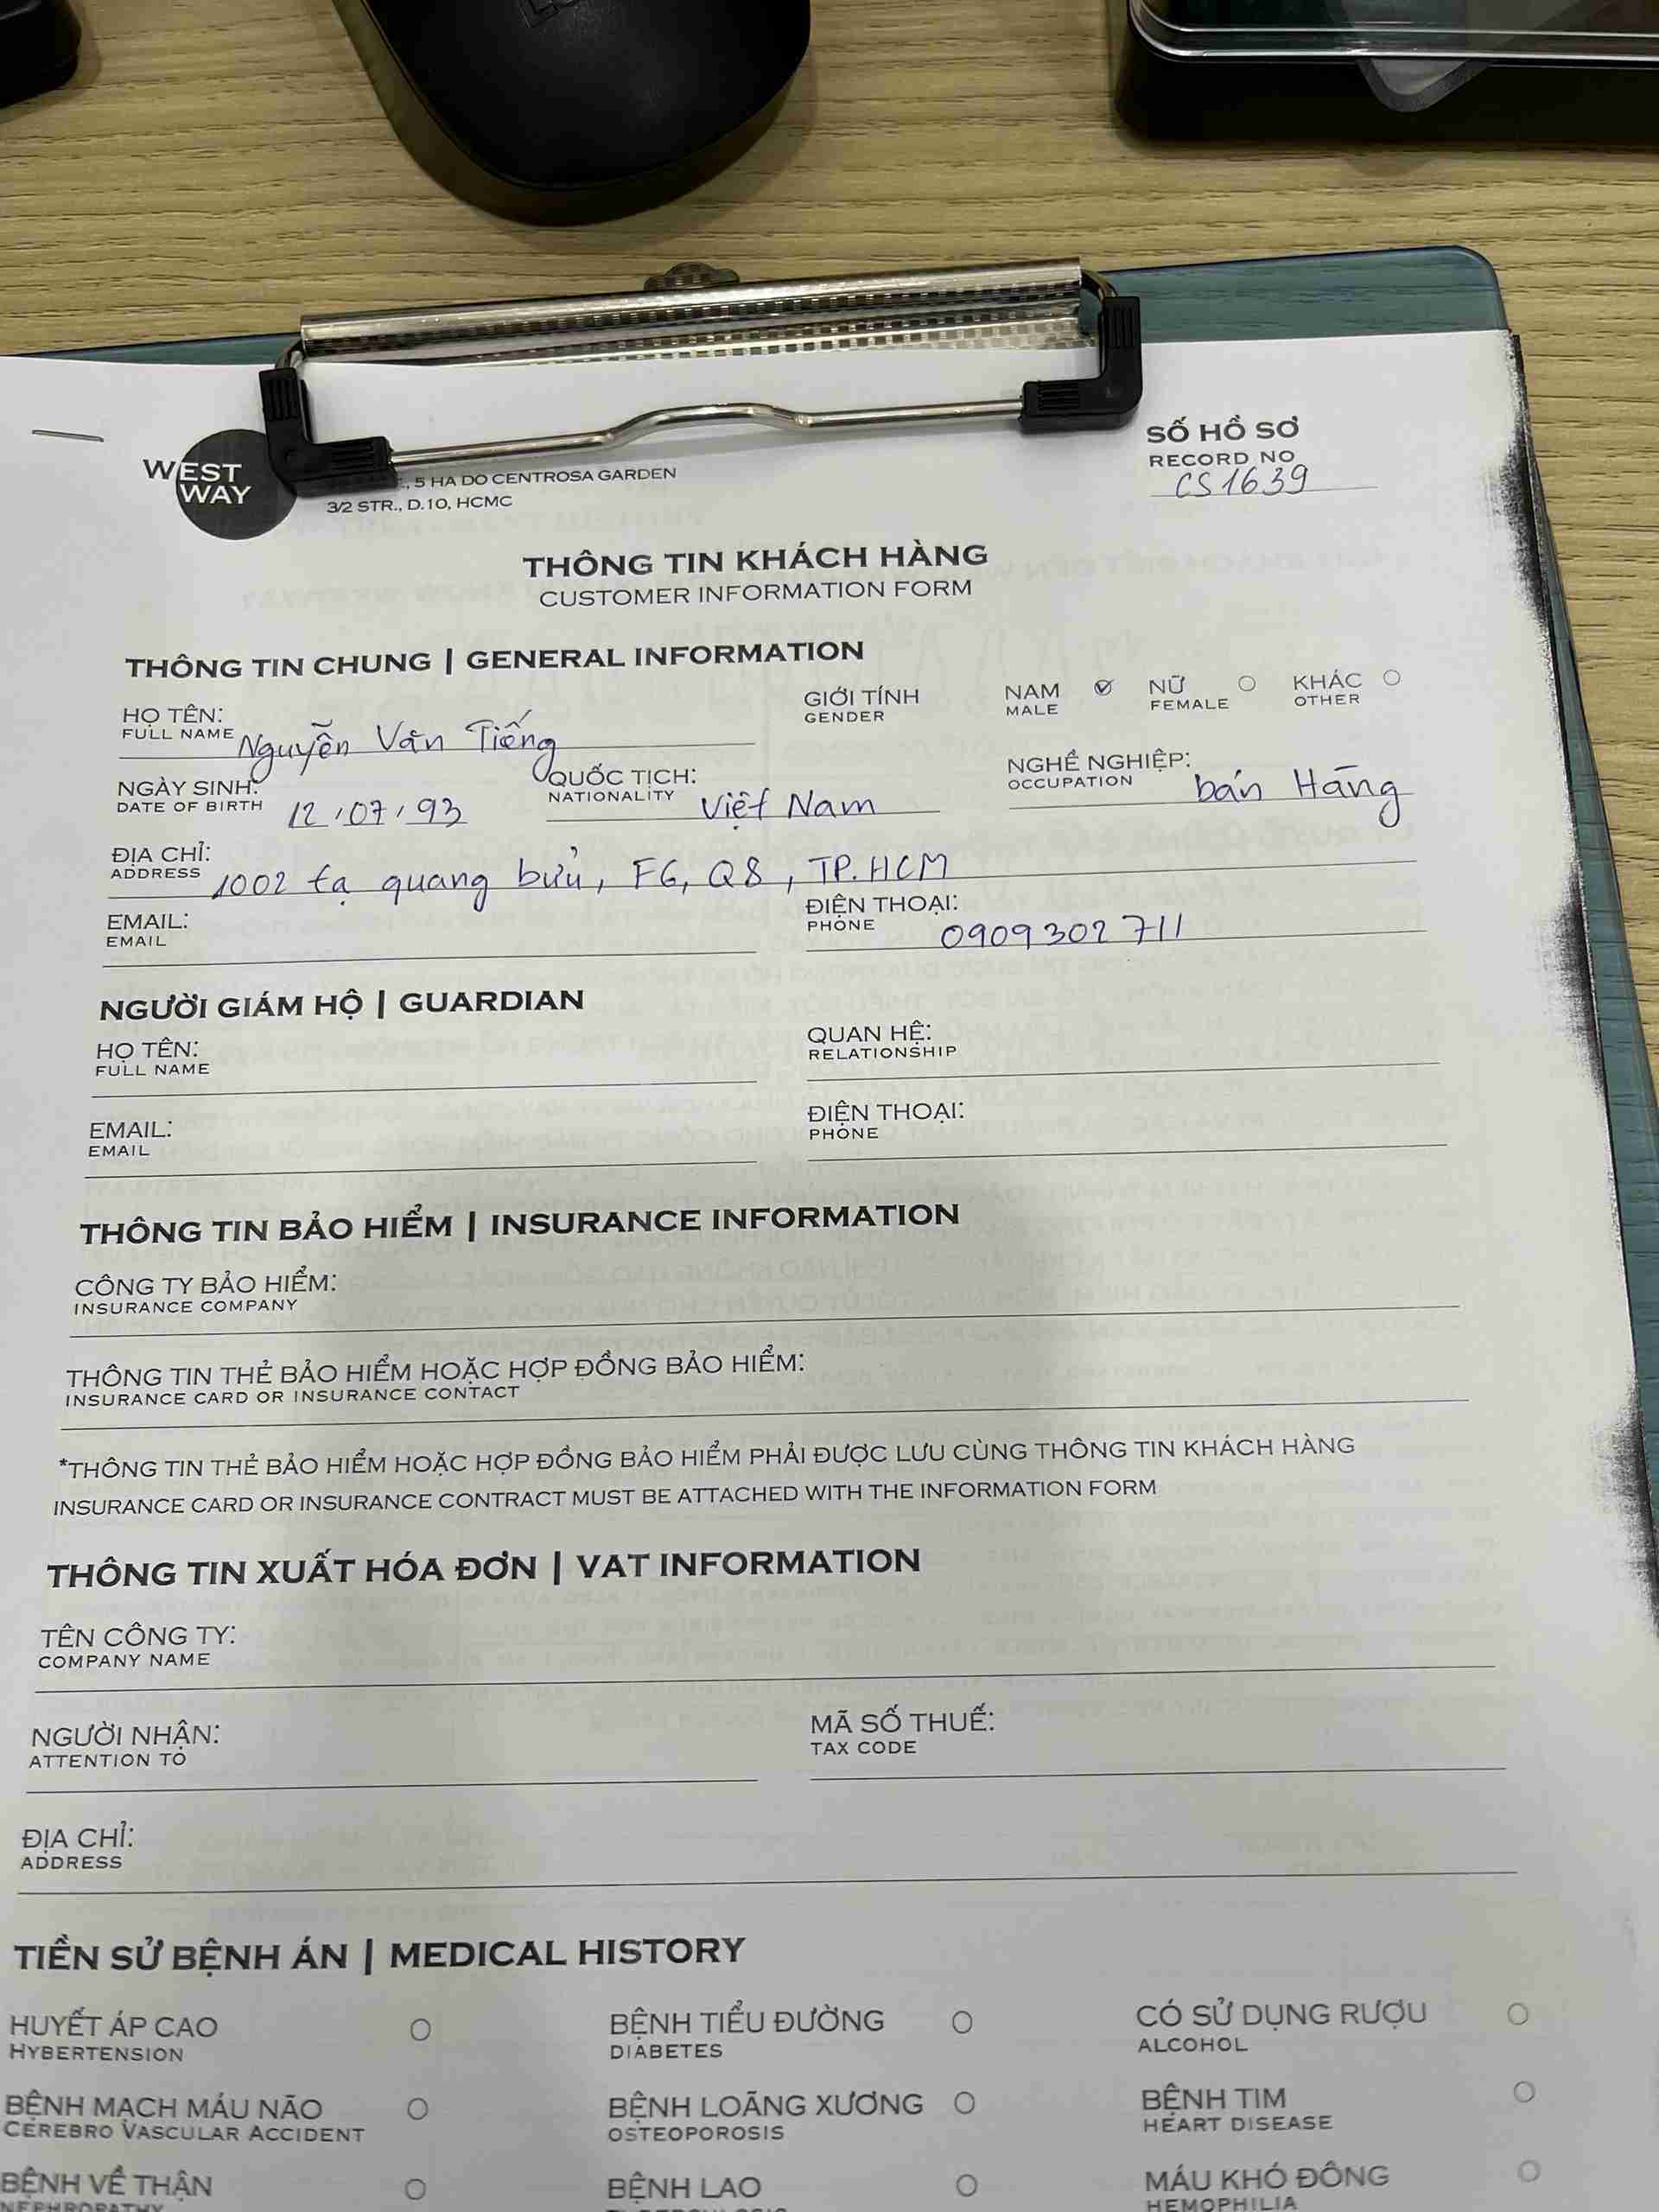 WEST
WAY
, 5 HA DO CENTROSA GARDEN
3/2 STR., D.10, HCMC
SỐ HỒ SƠ
RECORD NO
CS1639
THÔNG TIN KHÁCH HÀNG
CUSTOMER INFORMATION FORM
THÔNG TIN CHUNG | GENERAL INFORMATION
HỌ TÊN: Nguyễn Văn Tiếng
FULL NAME
GIỚI TÍNH NAM NỮ KHÁC
GENDER MALE FEMALE OTHER
NGÀY SINH: 12/07/93
DATE OF BIRTH
QUỐC TỊCH: Việt Nam
NATIONALITY
NGHỀ NGHIỆP: bán Hàng
OCCUPATION
ĐỊA CHỈ: 1002 tạ quang bửu, F6, Q8, TP.HCM
ADDRESS
EMAIL:
EMAIL
ĐIỆN THOẠI: 0909302711
PHONE
NGƯỜI GIÁM HỘ | GUARDIAN
HỌ TÊN:
FULL NAME
QUAN HỆ:
RELATIONSHIP
EMAIL:
EMAIL
ĐIỆN THOẠI:
PHONE
THÔNG TIN BẢO HIỂM | INSURANCE INFORMATION
CÔNG TY BẢO HIỂM:
INSURANCE COMPANY
THÔNG TIN THẺ BẢO HIỂM HOẶC HỢP ĐỒNG BẢO HIỂM:
INSURANCE CARD OR INSURANCE CONTACT
*THÔNG TIN THẺ BẢO HIỂM HOẶC HỢP ĐỒNG BẢO HIỂM PHẢI ĐƯỢC LƯU CÙNG THÔNG TIN KHÁCH HÀNG
INSURANCE CARD OR INSURANCE CONTRACT MUST BE ATTACHED WITH THE INFORMATION FORM
THÔNG TIN XUẤT HÓA ĐƠN | VAT INFORMATION
TÊN CÔNG TY:
COMPANY NAME
NGƯỜI NHẬN:
ATTENTION TO
MÃ SỐ THUẾ:
TAX CODE
ĐỊA CHỈ:
ADDRESS
TIỀN SỬ BỆNH ÁN | MEDICAL HISTORY
HUYẾT ÁP CAO BỆNH TIỂU ĐƯỜNG CÓ SỬ DỤNG RƯỢU
HYBERTENSION DIABETES ALCOHOL
BỆNH MẠCH MÁU NÃO BỆNH LOÃNG XƯƠNG BỆNH TIM
CEREBRO VASCULAR ACCIDENT OSTEOPOROSIS HEART DISEASE
BỆNH VỀ THẬN BỆNH LAO MÁU KHÓ ĐÔNG
NEPHROPATHY HEMOPHILIA